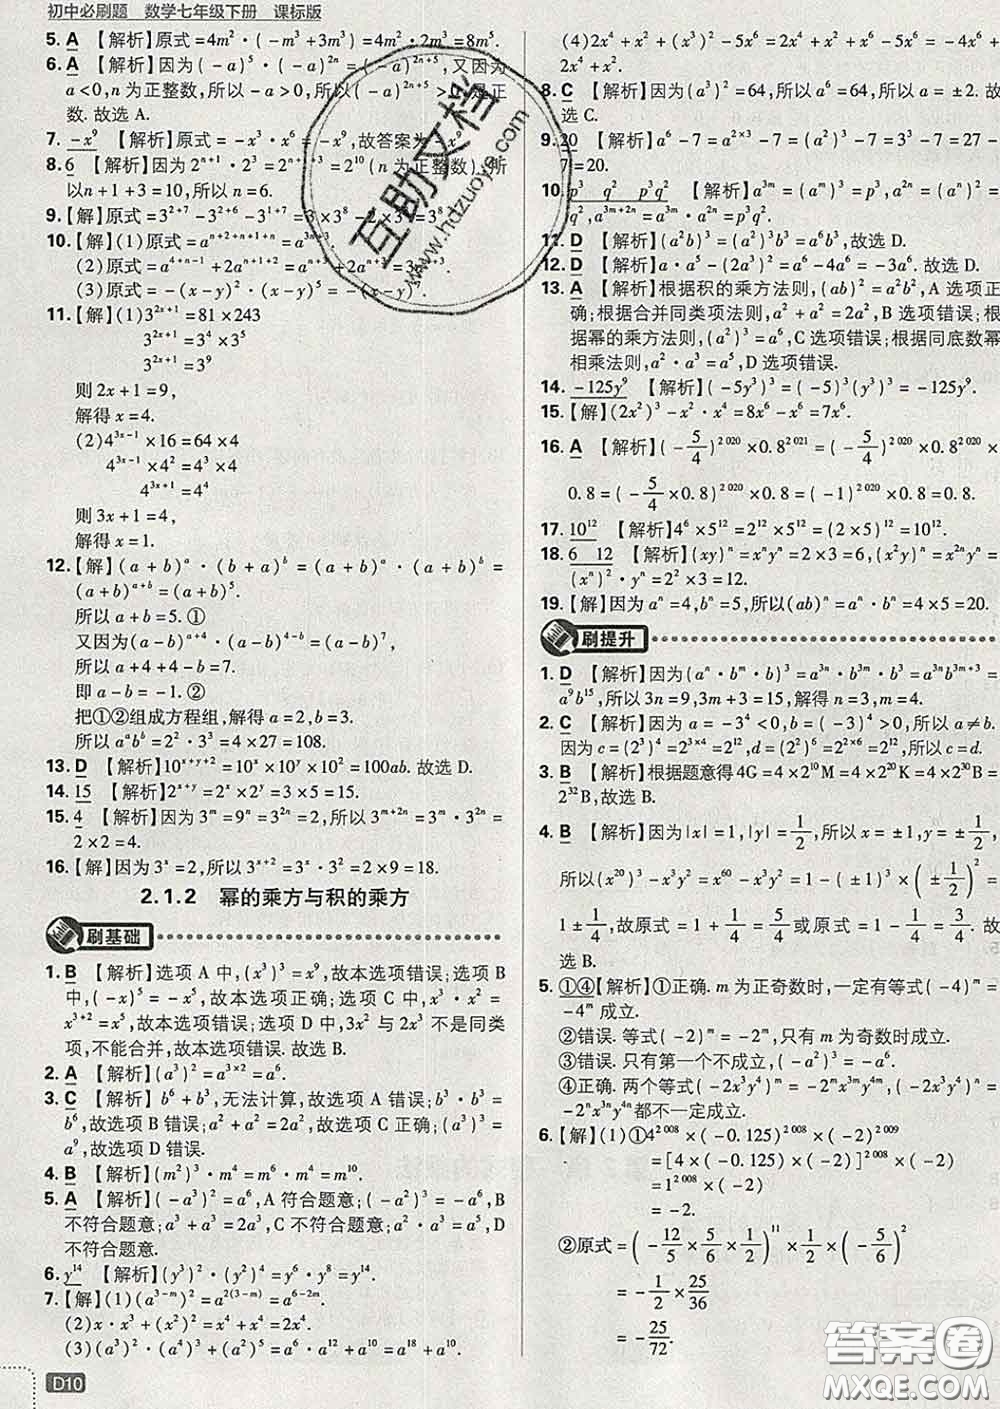 初中必刷题 数学七年级下册 课标版
5. A 【解析】原式=4m²·(-m³+3m³)=4m²·2m³=8m⁵.
6. A 【解析】因为(-a)⁵·(-a)²ⁿ=(-a)²ⁿ⁺⁵,又因为
a<0,n为正整数,所以-a>0,所以(-a)²ⁿ⁺⁵>0,是正
数.故选A.
7. -x⁹ 【解析】原式=-x³·x⁶=-x⁹,故答案为-x⁹.
8. 6 【解析】因为2ⁿ⁺¹·2³=2¹⁰(n为正整数),所
以n+1+3=10,所以n=6.
9. 【解】原式=3²⁺⁷-3²⁺⁶-3¹⁺⁷=3×3⁸-2×3⁸=3⁸.
10. 【解】(1)原式=aⁿ⁺²⁺ⁿ⁺¹⁺ⁿ=a³ⁿ⁺³.
(2)原式=a⁴⁺ⁿ⁻¹+2aⁿ⁺¹⁺²=aⁿ⁺³+2aⁿ⁺³=3aⁿ⁺³.
(3)原式=-(x-y)²·(x-y)⁵=-(x-y)⁷.
11. 【解】(1)3²ˣ⁺¹=81×243
3²ˣ⁺¹=3⁴×3⁵
3²ˣ⁺¹=3⁹
则2x+1=9,
解得x=4.
(2)4³ˣ⁻¹×16=64×4
4³ˣ⁻¹×4²=4³×4
4³ˣ⁺¹=4⁴
则3x+1=4,
解得x=1.
12. 【解】(a+b)ᵃ·(b+a)ᵇ=(a+b)ᵃ·(a+b)ᵇ=
(a+b)ᵃ⁺ᵇ=(a+b)⁵.
所以a+b=5.①
又因为(a-b)ᵃ⁺⁴·(a-b)⁴⁻ᵇ=(a-b)⁷,
所以a+4+4-b=7.
即a-b=-1.②
把①②组成方程组,解得a=2,b=3.
所以aᵃbᵇ=2²·3³=4×27=108.
13. D 【解析】10ˣ⁺ʸ⁺²=10ˣ×10ʸ×10²=100ab.故选D.
14. 15 【解析】2ˣ⁺ʸ=2ˣ×2ʸ=3×5=15.
15. 4 【解析】因为3ᵐ=9ⁿ=3²ⁿ=2,所以3ᵐ⁺²ⁿ=3ᵐ·3²ⁿ
=2×2=4.
16. 【解】因为3ˣ=2,所以3ˣ⁺²=3ˣ·3²=2×9=18.
2.1.2 幂的乘方与积的乘方
刷基础
1. B 【解析】选项A中,(x³)³=x⁹,故本选项错误;选项B
中,(-x)⁵=-x⁵,故本选项正确;选项C中,x³·x²=
x³⁺²=x⁵,故本选项错误;选项D中,3x²与2x³不是同类
项,不能合并,故本选项错误.故选B.
2. A 【解析】(a³)²=a³ˣ²=a⁶.
3. C 【解析】b⁶+b³,无法计算,故选项A错误;b³·b³=
b⁶,故选项B错误;a²+a²=2a²,故选项C正确;(a³)³=
a⁹,故选项D错误.
4. B 【解析】(m²)³·m⁴=m⁶·m⁴=m¹⁰.
5. A 【解析】(-a³)²=a⁶,A符合题意;(-a²)³=-a⁶,B
不符合题意;a³+a³=2a³,C不符合题意;a²·a³=a⁵,D
不符合题意.
6. y¹⁴ 【解析】(y³)²·(y²)⁴=y⁶·y⁸=y¹⁴.
7. 【解】(1)(a³⁻ᵐ)²=a²⁽³⁻ᵐ⁾=a⁶⁻²ᵐ.
(2)x·x³+(x²)²=x⁴+x⁴=2x⁴.
(3)(a²)³·(a³)⁴·(a²)⁵=a⁶·a¹²·a¹⁰=a²⁸.
D10
(4)2x⁴+x²+(x³)²-5x⁶=2x⁴+x²+x⁶-5x⁶=-4x⁶+
2x⁴+x².
8. C 【解析】因为(a³)²=64,所以a⁶=64,所以a=±2.故
选C.
9. 20 【解析】a⁶-7=a²ˣ³-7=(a²)³-7=3³-7=27-
7=20.
10. p³ q² p³q² 【解析】a³ᵐ=(aᵐ)³=p³,a²ⁿ=(aⁿ)²=
q²,a³ᵐ⁺²ⁿ=a³ᵐ·a²ⁿ=p³q².
11. D 【解析】(a²b)³=(a²)³b³=a⁶b³,故选D.
12. D 【解析】a·a⁵-(2a³)²=a⁶-4a⁶=-3a⁶.故选D.
13. A 【解析】根据积的乘方法则,(ab)²=a²b²,A选项正
确;根据合并同类项法则,a²+a²=2a²,B选项错误;根
据幂的乘方法则,(a²)³=a⁶,C选项错误;根据同底数幂
相乘法则,a²·a³=a⁵,D选项错误.
14. -125y⁹ 【解析】(-5y³)³=(-5)³(y³)³=-125y⁹.
15. 【解】(2x²)³-x²·x⁴=8x⁶-x⁶=7x⁶.
16. A 【解析】(-5/4)²⁰²⁰×0.8²⁰²¹=(-5/4)²⁰²⁰×0.8²⁰²⁰×
0.8=(-5/4×0.8)²⁰²⁰×0.8=(-1)²⁰²⁰×0.8=0.8.
17. 10¹² 【解析】4⁶×5¹²=2¹²×5¹²=(2×5)¹²=10¹².
18. 6 12 【解析】(xy)ⁿ=xⁿyⁿ=2×3=6,(x²y)ⁿ=x²ⁿyⁿ=
(xⁿ)²·yⁿ=2²×3=12.
19. 【解】因为aⁿ=4,bⁿ=5,所以(ab)ⁿ=aⁿ·bⁿ=4×5=20.
刷提升
1. D 【解析】因为(aⁿ·bᵐ·b)³=a³ⁿ·b³ᵐ·b³=a³ⁿb³ᵐ⁺³=
a⁹b¹⁵,所以3n=9,3m+3=15,解得n=3,m=4.
2. C 【解析】因为a=-3⁴<0,b=(-3)⁴>0,所以a≠b.
因为c=(2³)⁴=2³ˣ⁴=2¹²,d=(2²)⁶=2²ˣ⁶=2¹²,所以c=d.
3. B 【解析】根据题意得4G=4×2¹⁰M=4×2²⁰K=4×2³⁰B=
2³²B,故选B.
4. B 【解析】因为|x|=1,|y|=1/2,所以x=±1,y=±1/2.
所以(x²⁰)³-x³y²=x⁶⁰-x³y²=1-(±1)³×(±1/2)²=
1±1/4,故原式=1+1/4=5/4或原式=1-1/4=3/4.故
选B.
5. ①④【解析】①正确.m为正奇数时,一定有等式(-4)ᵐ=
-4ᵐ成立.
②错误.等式(-2)ᵐ=-2ᵐ,只有m为奇数时成立.
③错误.只有第一个不成立,(-a²)³=-a⁶.
④正确.两个等式(-2x³y⁴)ᵐ=-2ᵐx³ᵐy⁴ᵐ,(-2x³y⁴)ⁿ=
-2ⁿx³ⁿy⁴ⁿ都不一定成立.
6. 【解】(1)①4²⁰⁰⁸×(-0.125)²⁰⁰⁸×(-2)²⁰⁰⁹
=[4×(-0.125)×(-2)]²⁰⁰⁸×(-2)
=1²⁰⁰⁸×(-2)
=-2.
②原式=(-12/5×5/6×1/2)¹¹×1/2×(-5/6)²
=-1/2×25/36
=-25/72.
互助文档
www.hdzuoye.com
答案圈
MXQE.COM